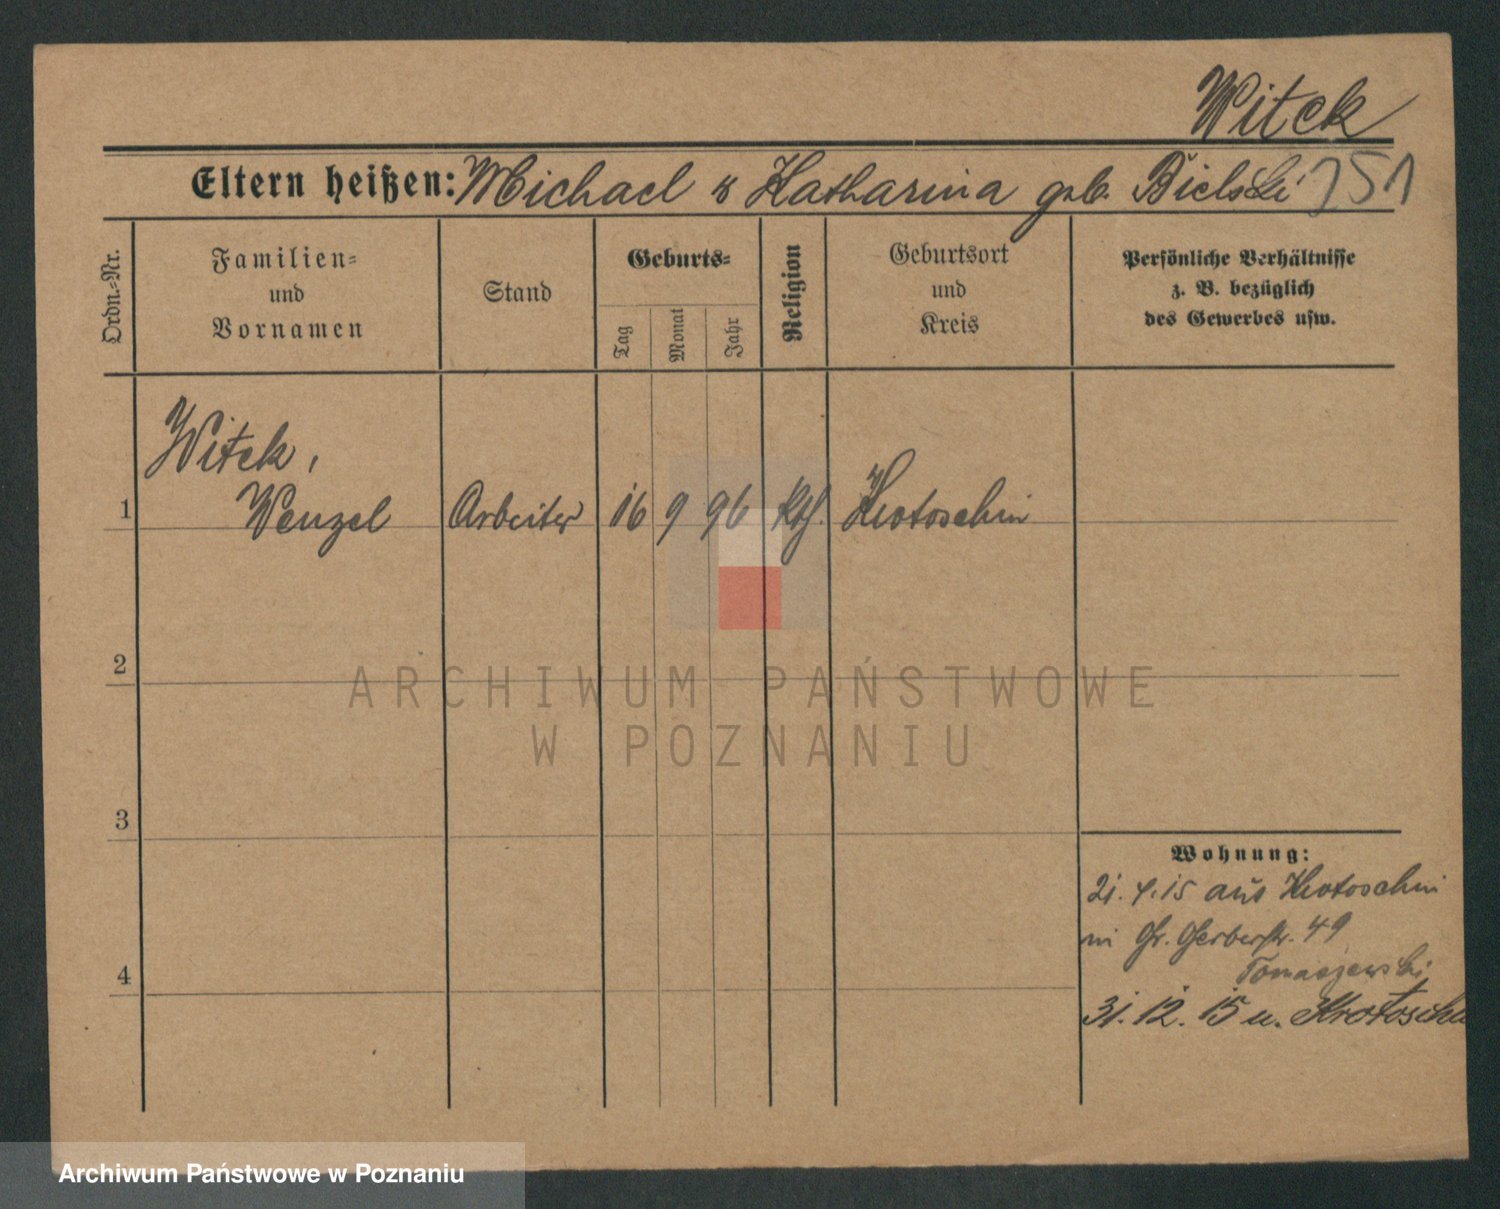 Witek
Eltern heißen: Michael & Katharina geb. Bielski 151
Ordn.-Nr.
Familien-
und
Vornamen
Stand
Geburts-
Tag
Monat
Jahr
Religion
Geburtsort
und
Kreis
Persönliche Verhältnisse
z. B. bezüglich
des Gewerbes usw.
Witek,
1 Wenzel Arbeiter 16 9 96 Kth. Krotoschin
2
3
4
Wohnung:
21. 4. 15 aus Krotoschin
in Gr. Gerberstr. 49
Tomaszewski
31. 12. 15 n. Krotoschin
ARCHIWUM PAŃSTWOWE
W POZNANIU
Archiwum Państwowe w Poznaniu